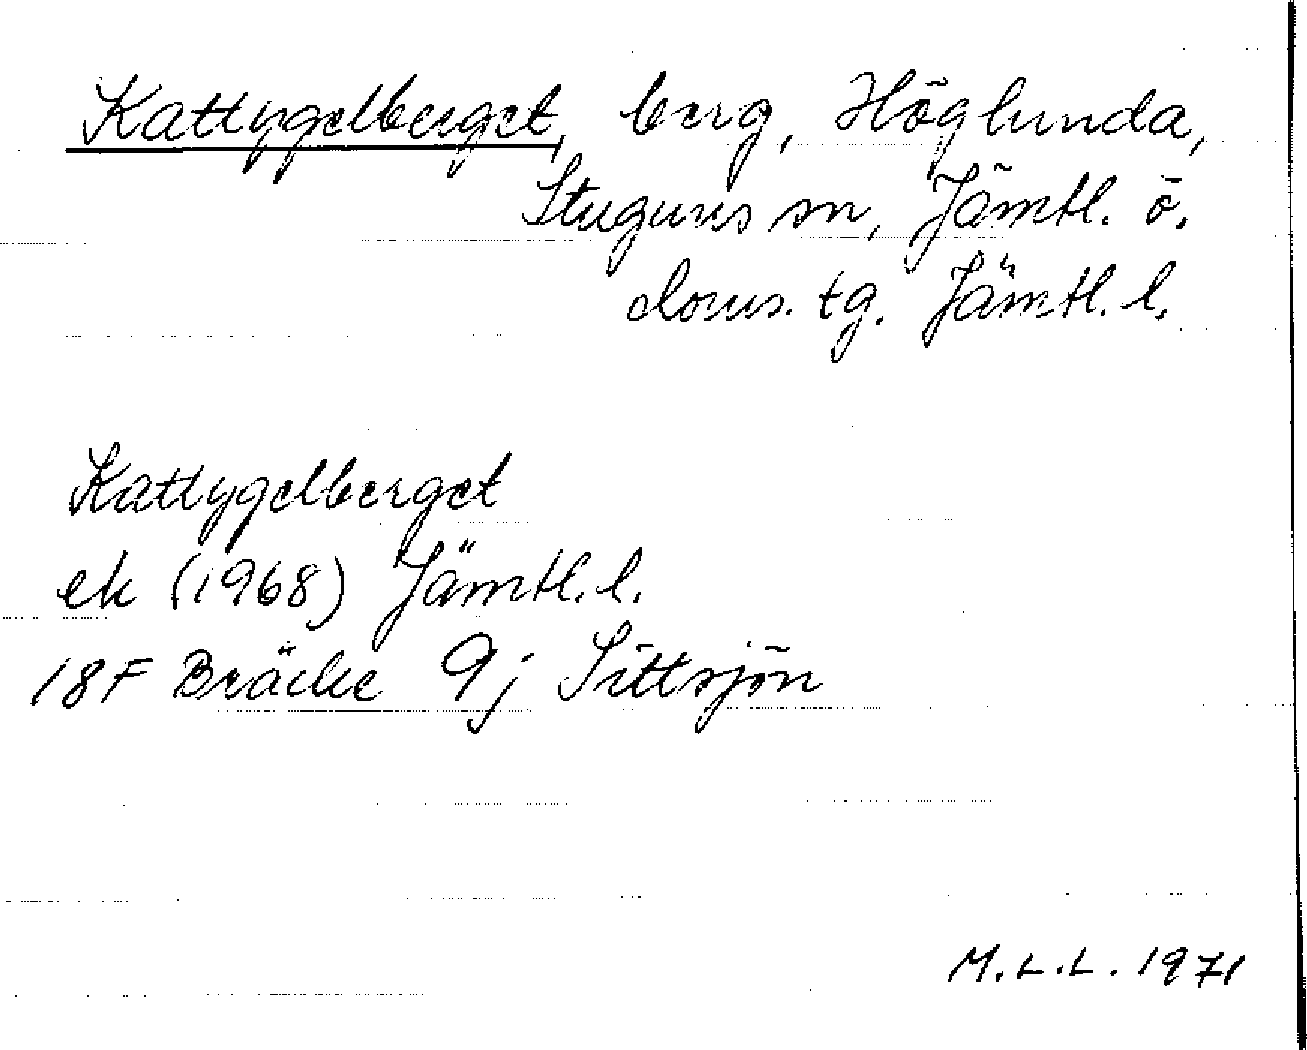 Kattygelberget, berg, Höglunda,
Stuguns sn, Jämtl. ö.
doms. tg. Jämtl. l.
Kattygelberget
ek (1968) Jämtl. l.
18F Bräcke 9j Sittsjön
M.L.L. 1971